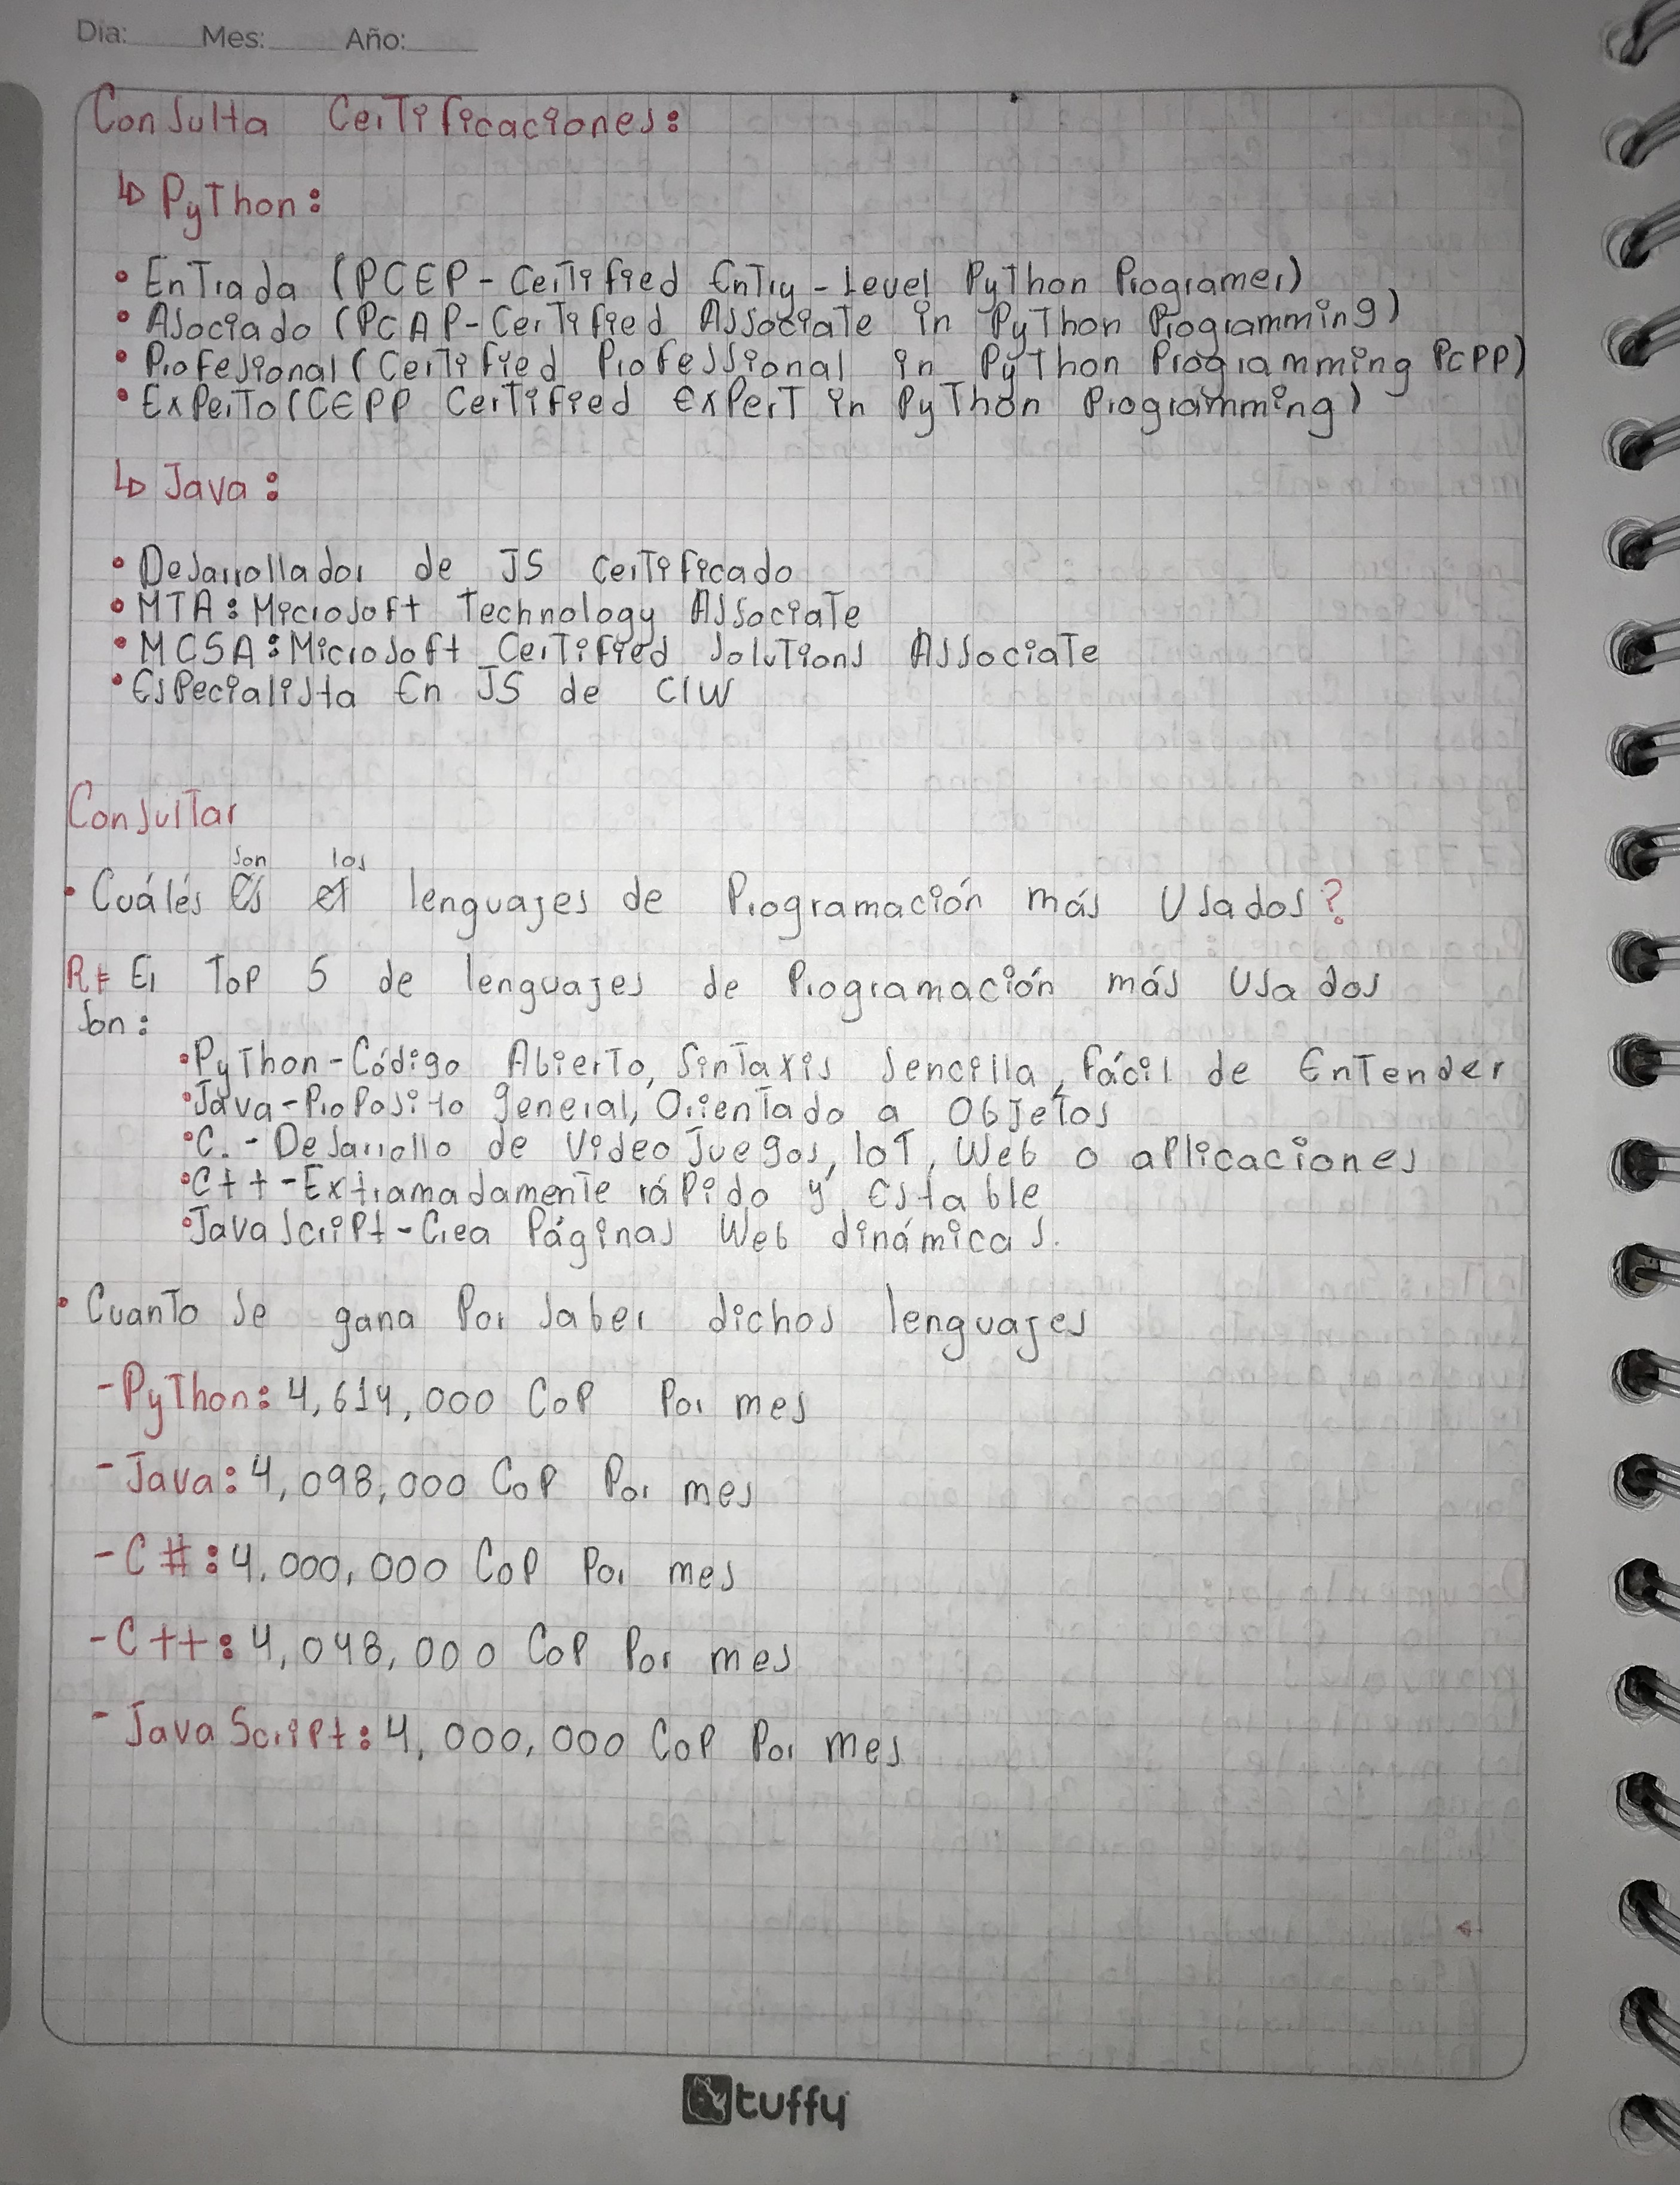 Día: Mes: Año:
Consulta Certificaciones:
↳ Python:
• Entrada (PCEP - Certified Entry - Level Python Programer)
• Asociado (PCAP - Certified Associate in Python Programming)
• Profesional (Certified Professional in Python Programming PCPP)
• Experto (CEPP Certified Expert in Python Programming)
↳ Java:
• Desarrollador de JS Certificado
• MTA: Microsoft Technology Associate
• MCSA: Microsoft Certified Solutions Associate
• Especialista En JS de CIW
Consultar
son los
• Cuáles es el lenguajes de Programación más Usados?
R≠ El Top 5 de lenguajes de Programación más Usados
Son:
• Python - Código Abierto, Sintaxis Sencilla, fácil de Entender
• Java - Proposito general, Orientado a Objetos
• C. - Desarrollo de Video Juegos, IoT, Web o aplicaciones
• C++ - Extramadamente rápido y Estable
• JavaScript - Crea Páginas Web dinámicas.
• Cuanto se gana Por saber dichos lenguajes
- Python: 4,614,000 COP Por mes
- Java: 4,098,000 COP Por mes
- C#: 4,000,000 COP Por mes
- C++: 4,048,000 COP Por mes
- JavaScript: 4,000,000 COP Por mes
tuffy